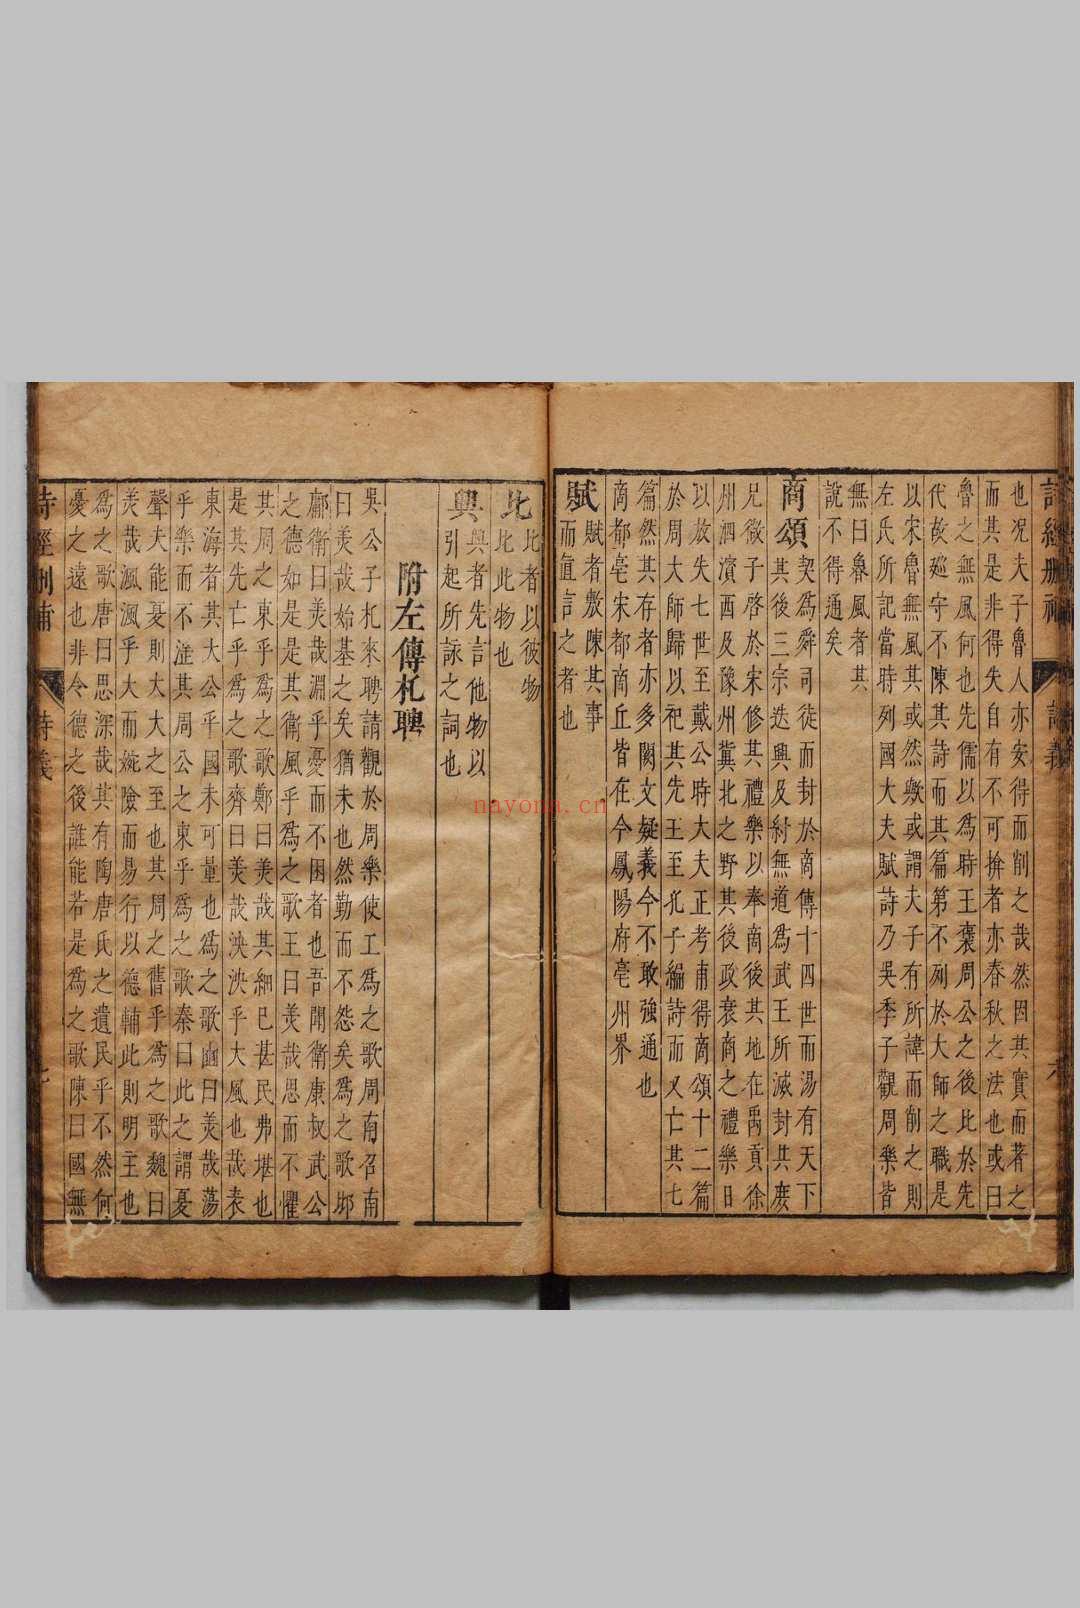 詩經刪補
詩義
六
也况夫子魯人亦安得而削之哉然因其實而著之
而其是非得失自有不可揜者亦春秋之法也或曰
魯之無風何也先儒以爲時王褒周公之後比於先
代故廵守不陳其詩而其篇第不列於大師之職是
以宋魯無風其或然歟或謂夫子有所諱而削之則
左氏所記當時列國大夫賦詩乃吳季子觀周樂皆
無曰魯風者其
說不得通矣
商頌
契爲舜司徒而封於商傳十四世而湯有天下
其後三宗迭興及紂無道爲武王所滅封其庶
兄微子啓於宋修其禮樂以奉商後其地在禹貢徐
州泗濱西及豫州冀北之野其後政衰商之禮樂日
以放失七世至戴公時大夫正考甫得商頌十二篇
於周大師歸以祀其先王至孔子編詩而又亡其七
篇然其存者亦多闕文疑義今不敢強通也
商都亳宋都商丘皆在今鳳陽府亳州界
賦
賦者敷陳其事
而直言之者也
比
比者以彼物
比此物也
興
興者先言他物以
引起所詠之詞也
附左傳札聘
吳公子札來聘請觀於周樂使工爲之歌周南召南
曰美哉始基之矣猶未也然勤而不怨矣爲之歌邶
鄘衛曰美哉淵乎憂而不困者也吾聞衛康叔武公
之德如是是其衛風乎爲之歌王曰美哉思而不懼
其周之東乎爲之歌鄭曰美哉其細已甚民弗堪也
是其先亡乎爲之歌齊曰美哉泱泱乎大風也哉表
東海者其大公乎國未可量也爲之歌豳曰美哉蕩
乎樂而不淫其周公之東乎爲之歌秦曰此之謂憂
聲夫能憂則大大之至也其周之舊乎爲之歌魏曰
美哉渢渢乎大而婉險而易行以德輔此則明主也
爲之歌唐曰思深哉其有陶唐氏之遺民乎不然何
憂之遠也非令德之後誰能若是爲之歌陳曰國無
詩經刪補
詩義
七
nayona.cn